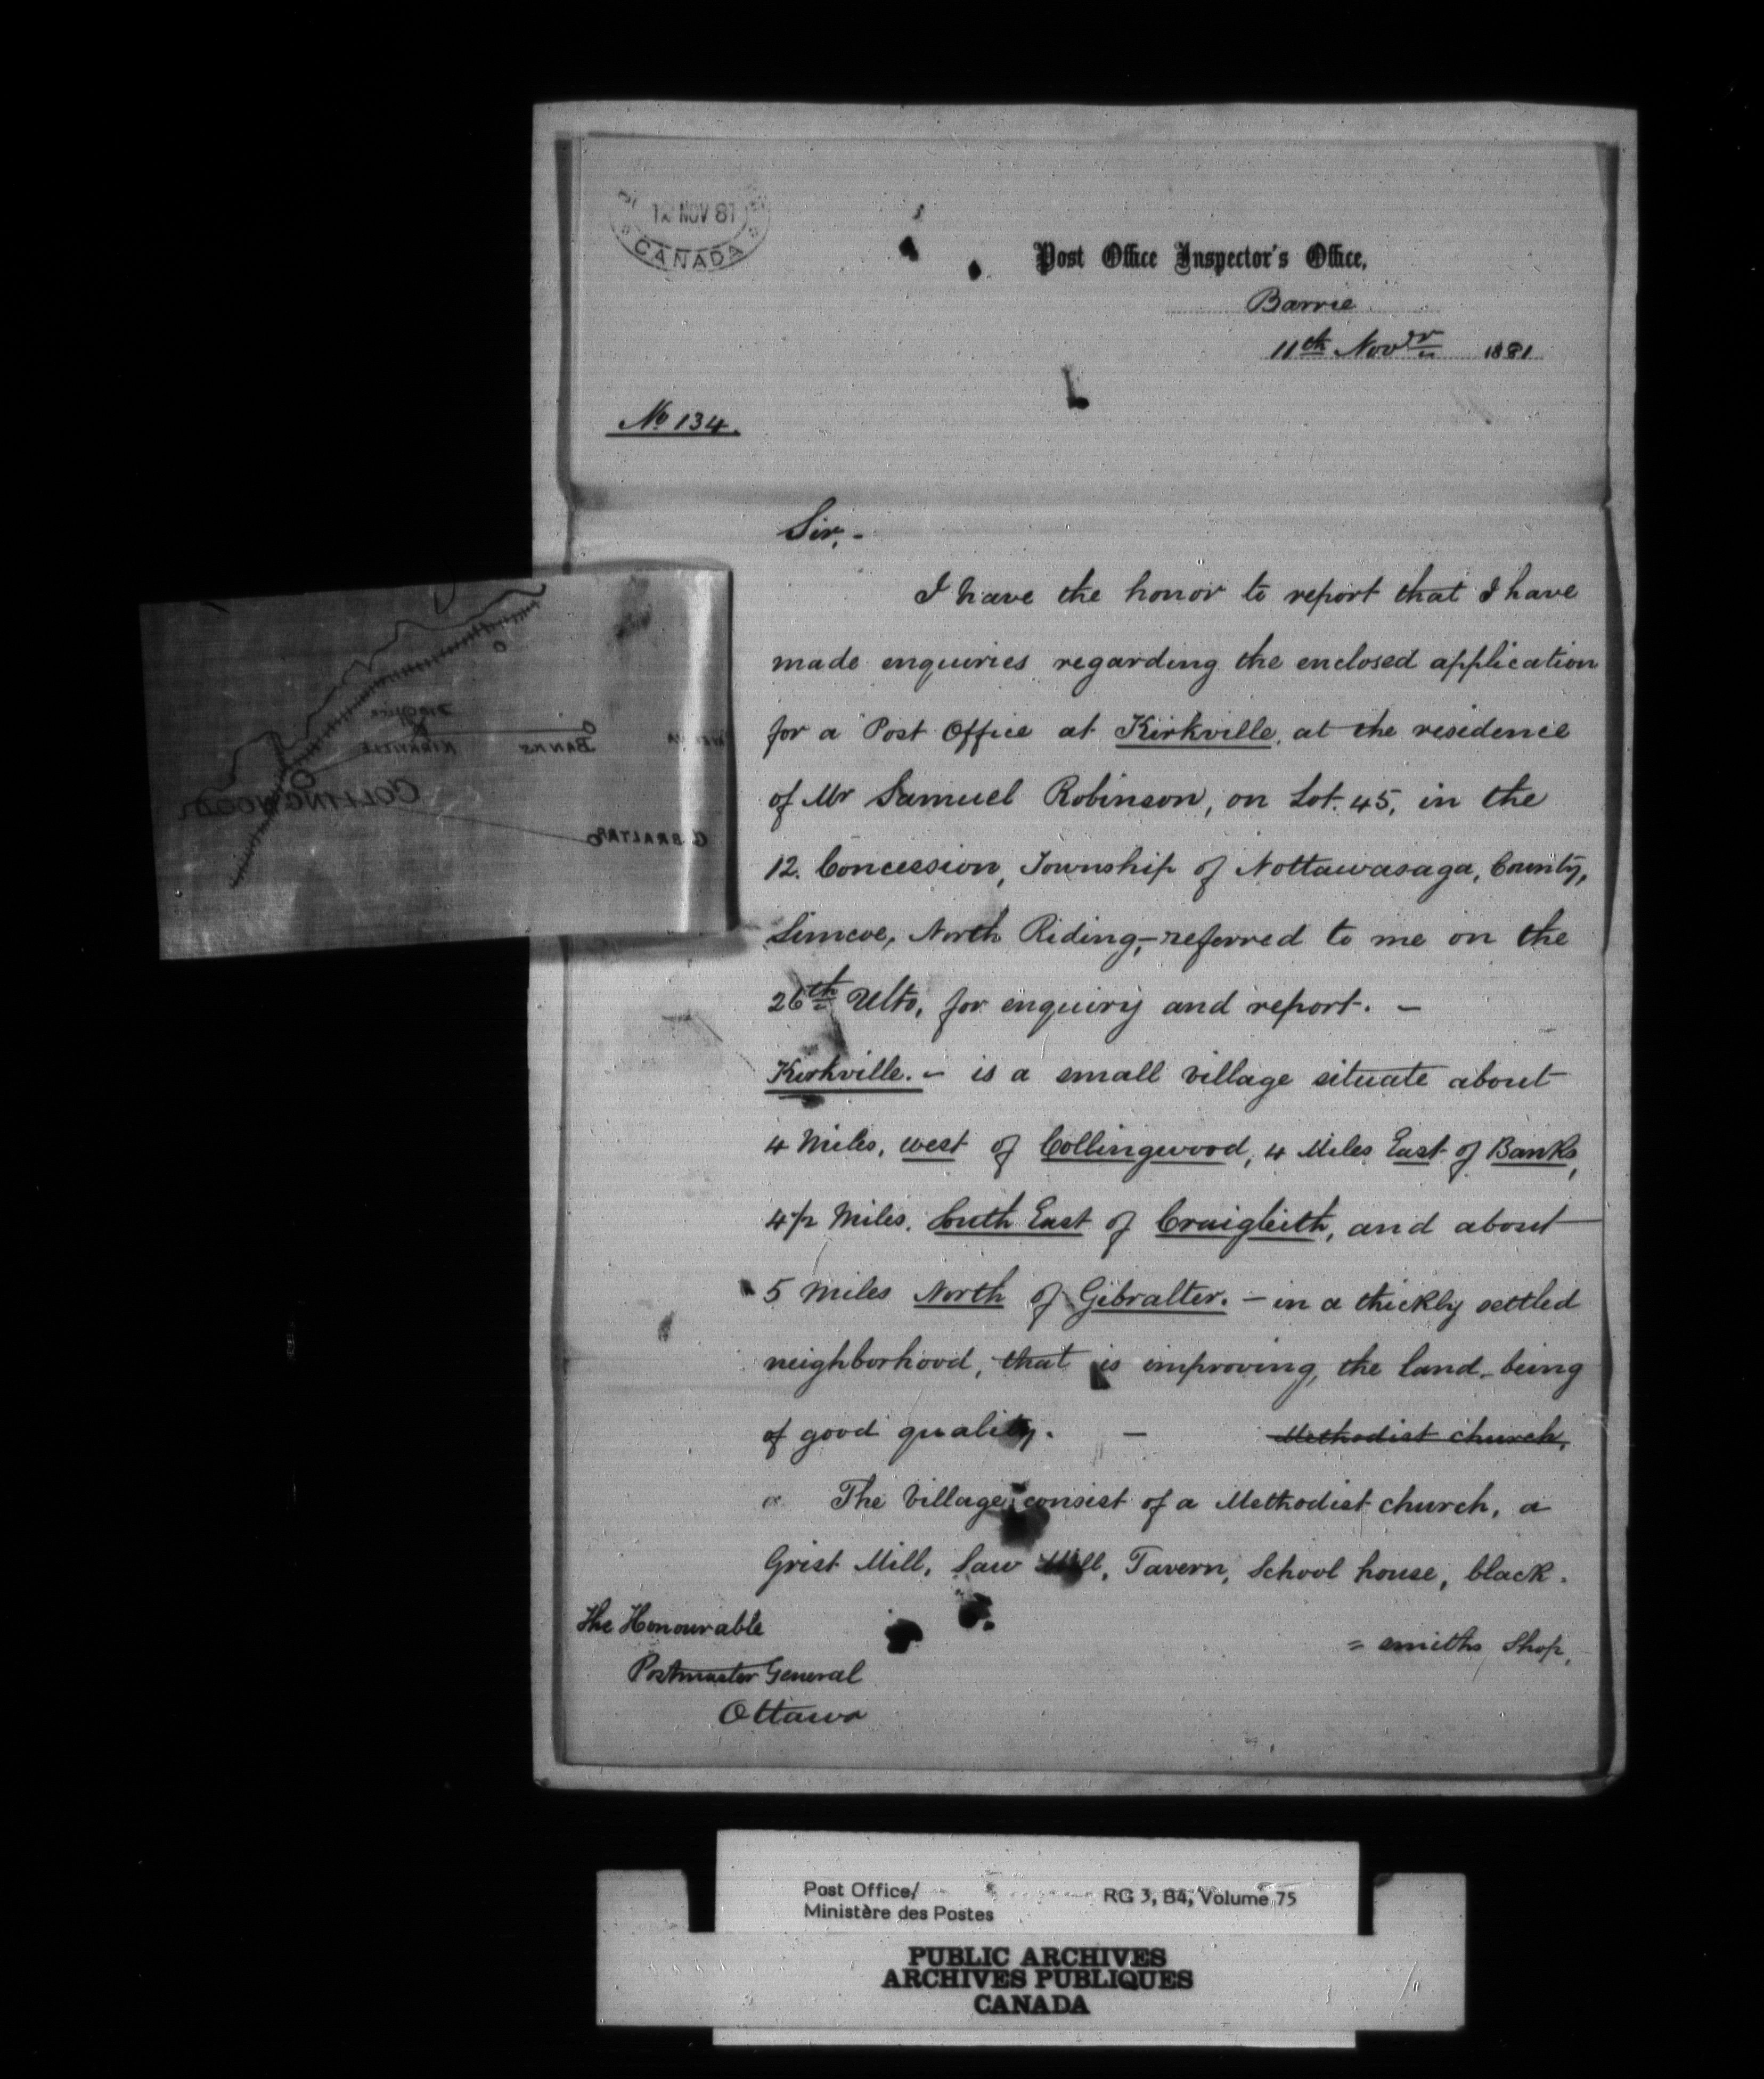 12 NOV 81
CANADA
Post Office Inspector's Office,
Barrie
11th Novr 1881
No 134.
Sir,-
I have the honor to report that I have
made enquiries regarding the enclosed application
for a Post Office at Kirkville, at the residence
of Mr Samuel Robinson, on Lot. 45, in the
12. Concession, Township of Nottawasaga, County,
Simcoe, North Riding,- referred to me on the
26th Ulto, for enquiry and report. -
Kirkville. - is a small village situate about
4 Miles, west of Collingwood, 4 Miles East of Banks,
4½ Miles. South East of Craigleith, and about
5 Miles North of Gibralter. - in a thickly settled
neighborhood, that is improving, the land being
of good quality. - Methodist church,
The Village consist of a Methodist church, a
Grist Mill, Saw Mill, Tavern, School house, black-
= smiths Shop,
The Honourable
Postmaster General
Ottawa
BANKS
KIRKVILLE
COLLINGWOOD
GIBRALTAR
Post Office/
Ministère des Postes
RG 3, B4, Volume 75
PUBLIC ARCHIVES
ARCHIVES PUBLIQUES
CANADA